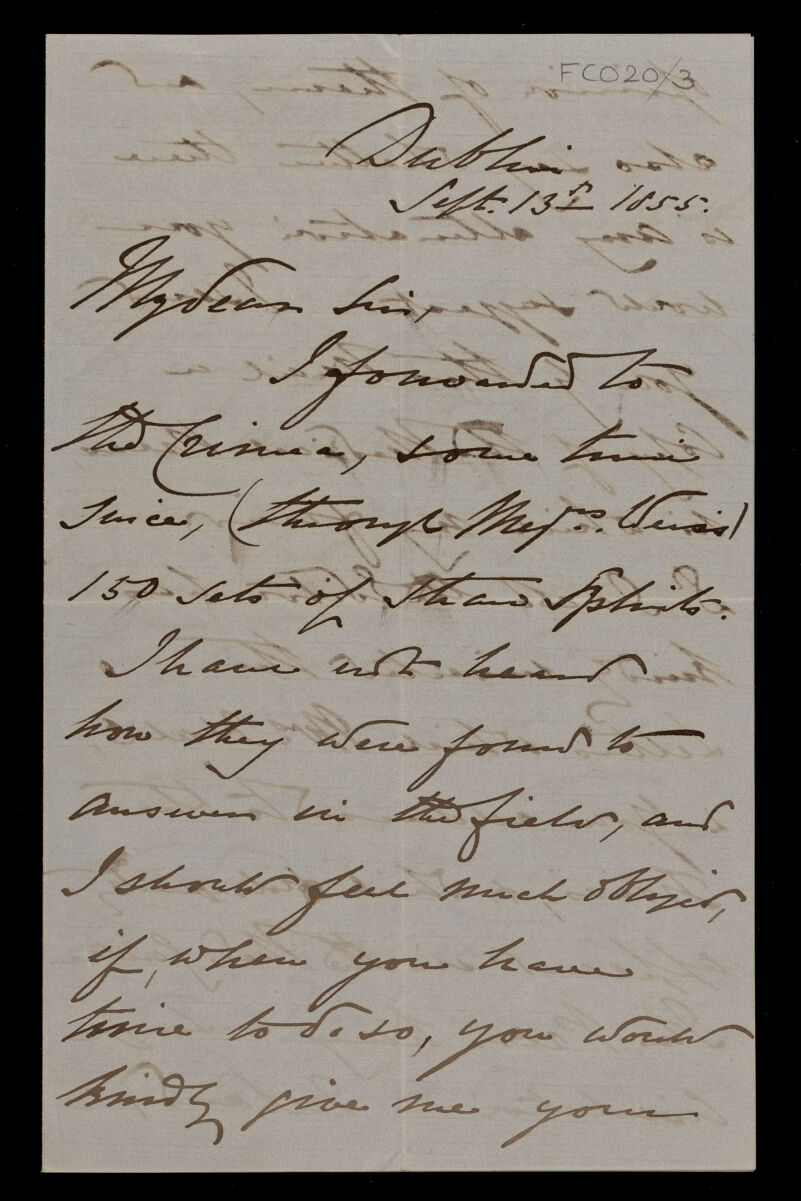 FCO20/3
Dublin
Sept. 13th 1855.
My dear Sir,
I forwarded to
the Crimea, some time
since, (through Messrs. Weiss)
150 sets of straw Splints.
I have not heard
how they were found to
answer in the field, and
I should feel much obliged,
if, when you have
time to do so, you would
kindly give me your